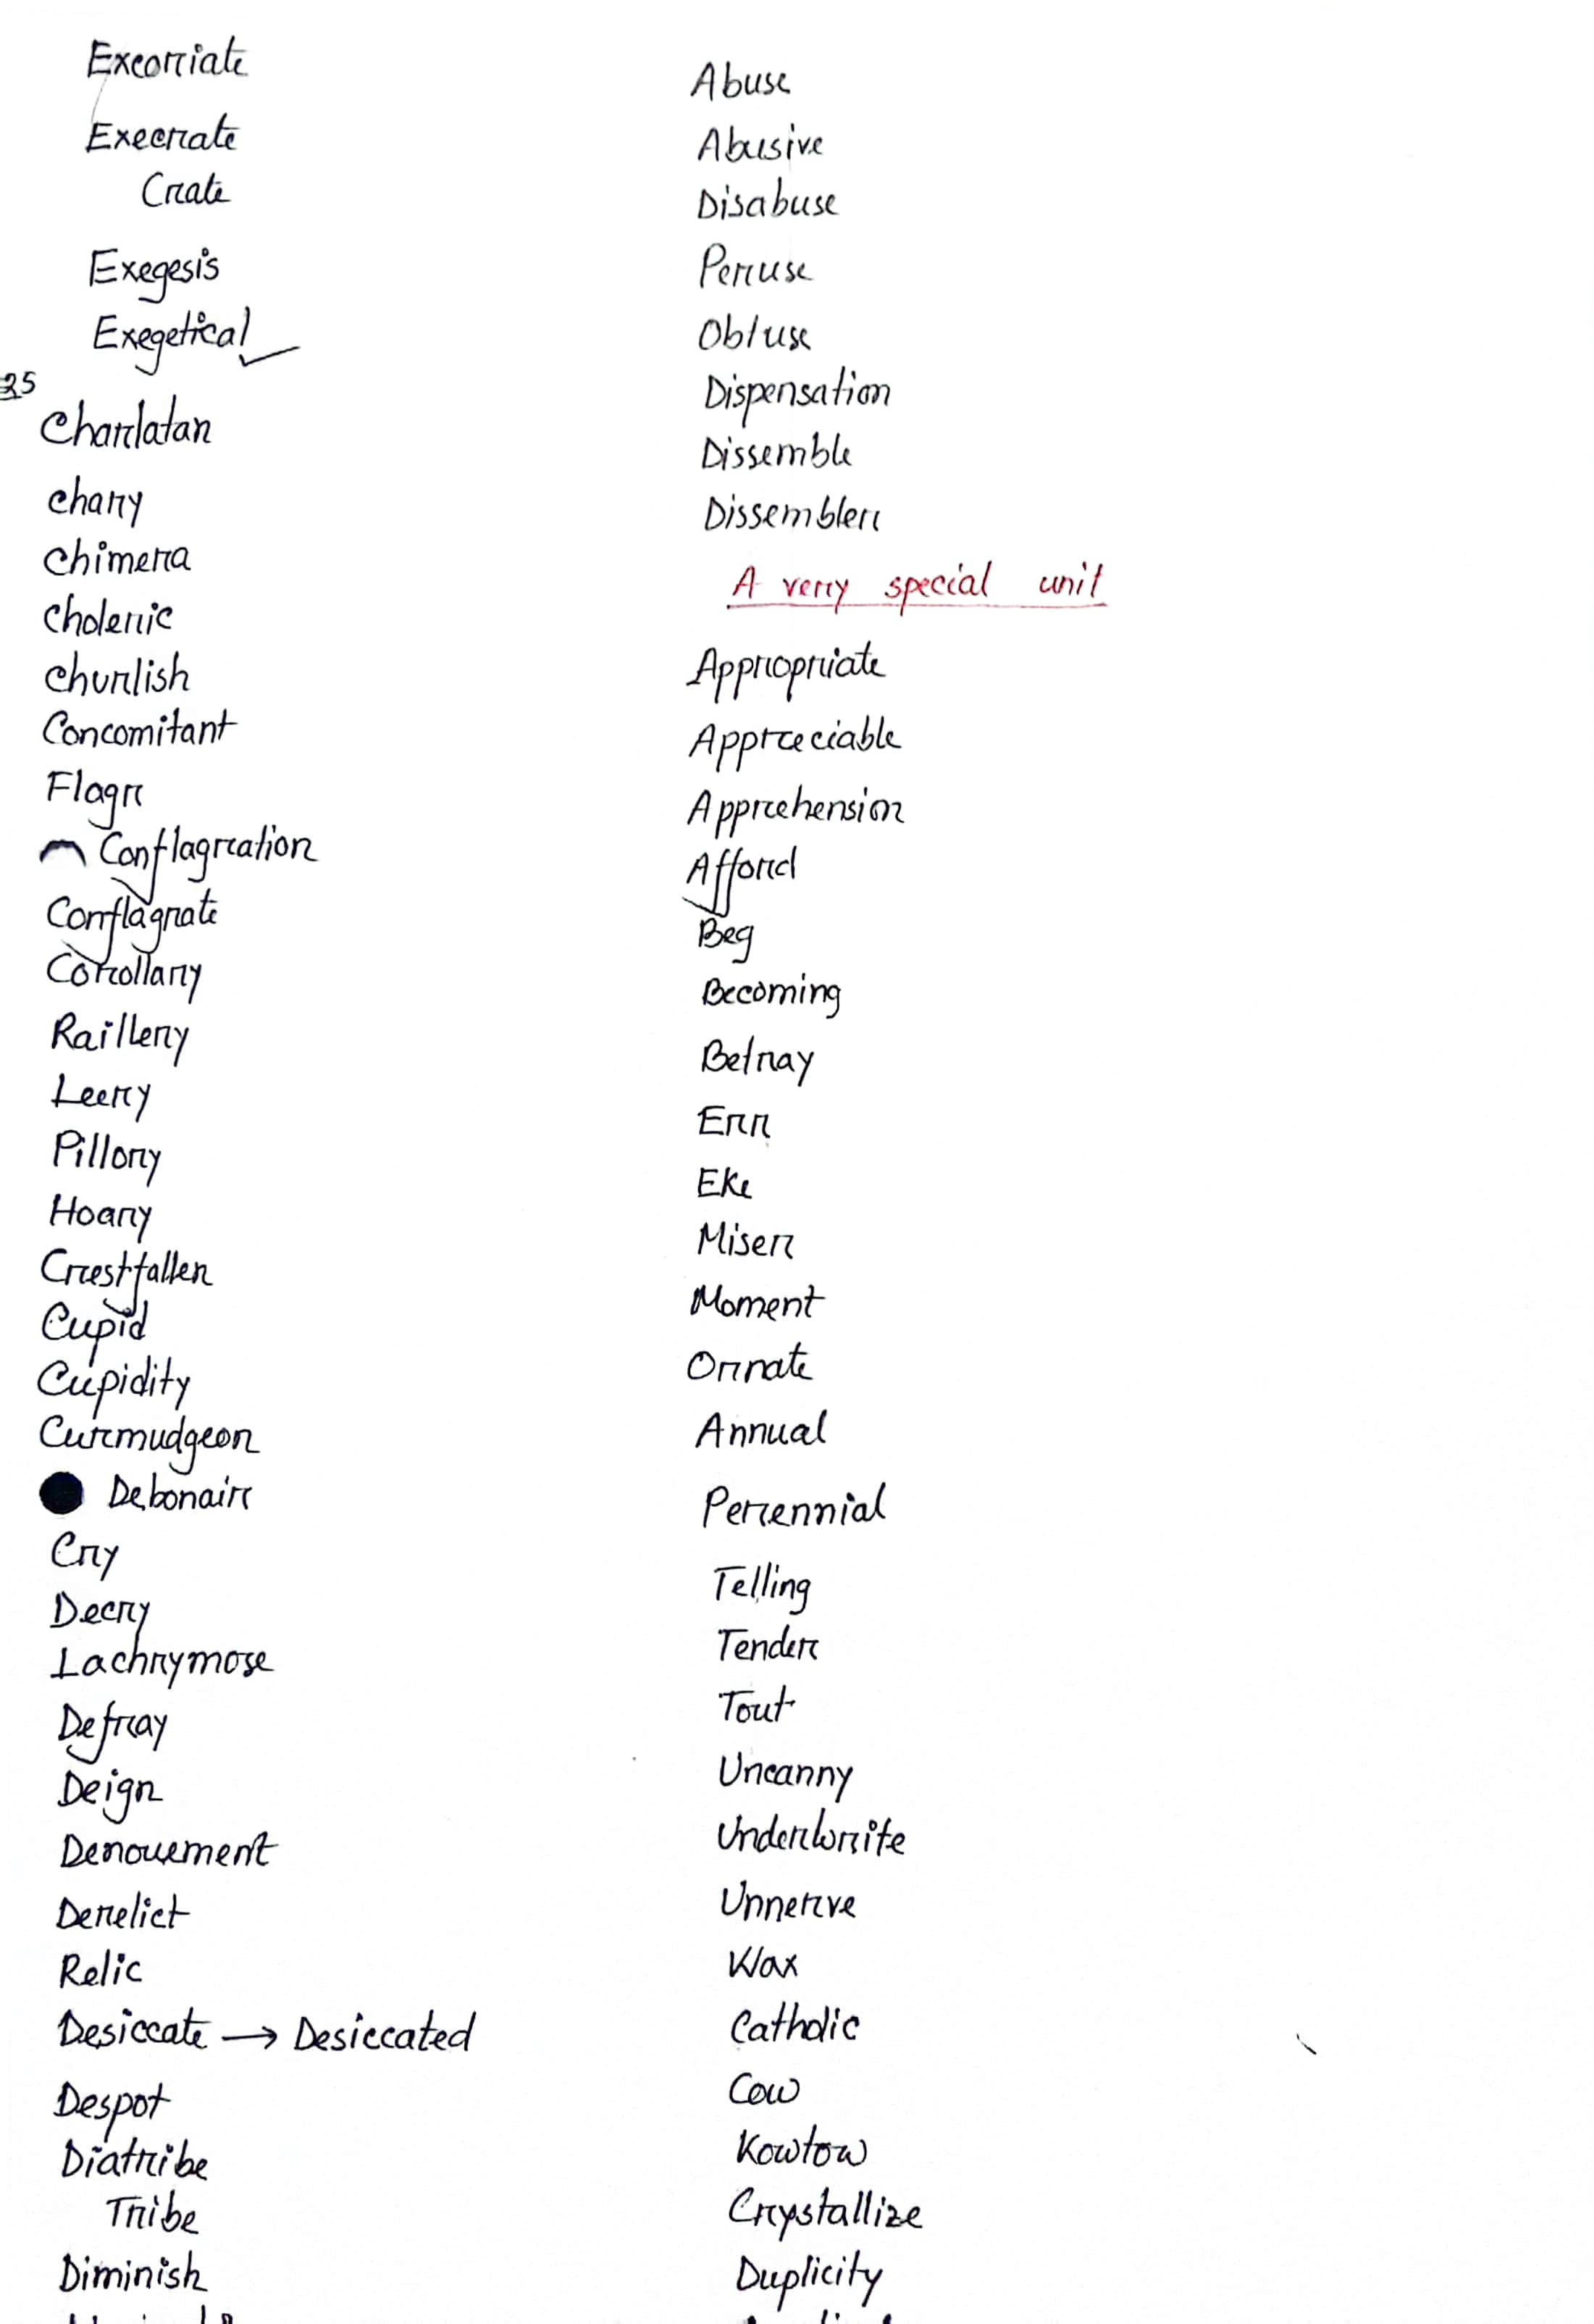 Excoriate
Execrate
Crate
Exegesis
Exegetical
25
Charlatan
chary
chimera
choleric
churlish
Concomitant
Flagr
Conflagration
Conflagrate
Corollary
Raillery
Leery
Pillory
Hoary
Crestfallen
Cupid
Cupidity
Curmudgeon
Debonair
Cry
Decry
Lachrymose
Defray
Deign
Denouement
Derelict
Relic
Desiccate → Desiccated
Despot
Diatribe
Tribe
Diminish
Abuse
Abusive
Disabuse
Peruse
Obtuse
Dispensation
Dissemble
Dissembler
A very special unit
Appropriate
Appreciable
Apprehension
Afford
Beg
Becoming
Betray
Err
Eke
Miser
Moment
Ornate
Annual
Perennial
Telling
Tender
Tout
Uncanny
Underwrite
Unnerve
Wax
Catholic
Cow
Kowtow
Crystallize
Duplicity